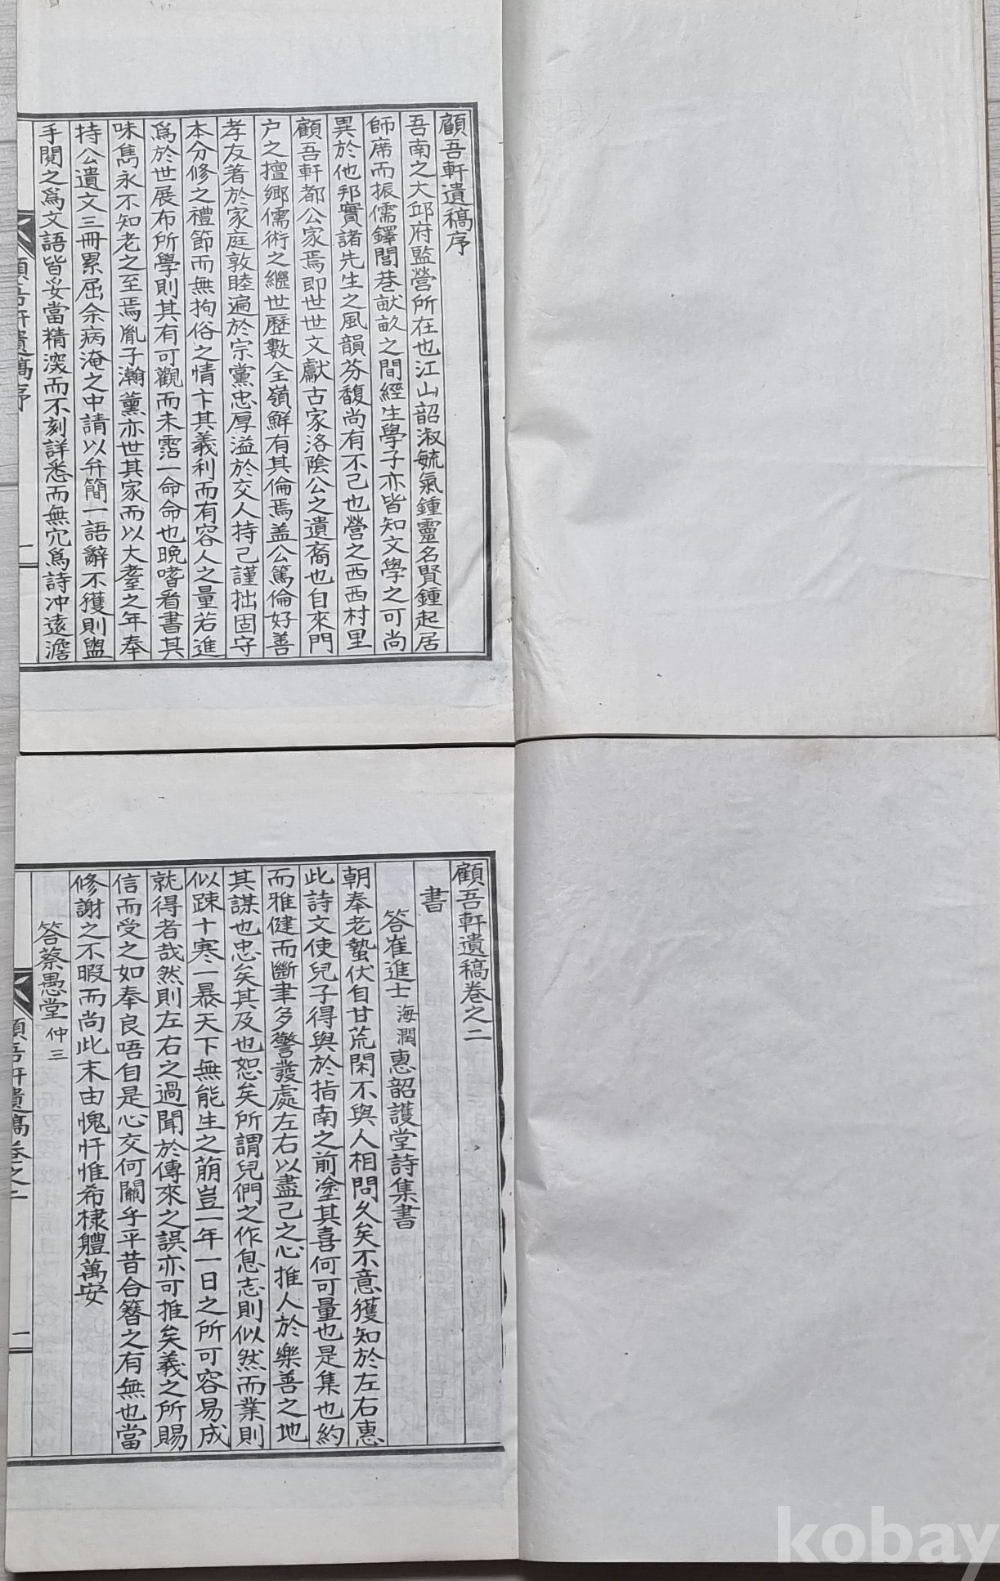 顧吾軒遺稿序
吾南之大邱府監營所在也江山韶淑毓氣鍾靈名賢鍾起居
師席而振儒鐸閭巷畎畝之間經生學子亦皆知文學之可尚
異於他邦實諸先生之風韻芬馥尚有不已也營之西西村里
顧吾軒都公家焉即世世文獻古家洛陰公之遺裔也自來門
户之擅鄉儒術之繼世歷數全嶺鮮有其倫焉盖公篤倫好善
孝友著於家庭敦睦遍於宗黨忠厚溢於交人持己謹拙固守
本分修之禮節而無拘俗之情卞其義利而有容人之量若進
爲於世展布所學則其有可觀而未霑一命命也晩嗜看書其
味雋永不知老之至焉胤子瀚薰亦世其家而以大耋之年奉
持公遺文三冊累屈余病淹之中請以弁簡一語辭不獲則盥
手閱之爲文語皆妥當精深而不刻詳悉而無冗爲詩冲遠澹
顧吾軒遺稿序
一
顧吾軒遺稿卷之二
書
答崔進士海潤惠韶護堂詩集書
朝奉老蟄伏自甘荒閑不與人相問久矣不意獲知於左右惠
此詩文使兒子得與於指南之前塗其喜何可量也是集也約
而雅健而斷聿多警發處左右以盡己之心推人於樂善之地
其謀也忠矣其及也恕矣所謂兒們之作息志則似然而業則
似踈十寒一曝天下無能生之萠豈一年一日之所可容易成
就得者哉然則左右之過聞於傳來之誤亦可推矣義之所賜
信而受之如奉良唔自是心交何關乎平昔合簪之有無也當
修謝之不暇而尚此末由愧忓惟希棣軆萬安
答蔡愚堂仲三
顧吾軒遺稿卷之二
一
kobay